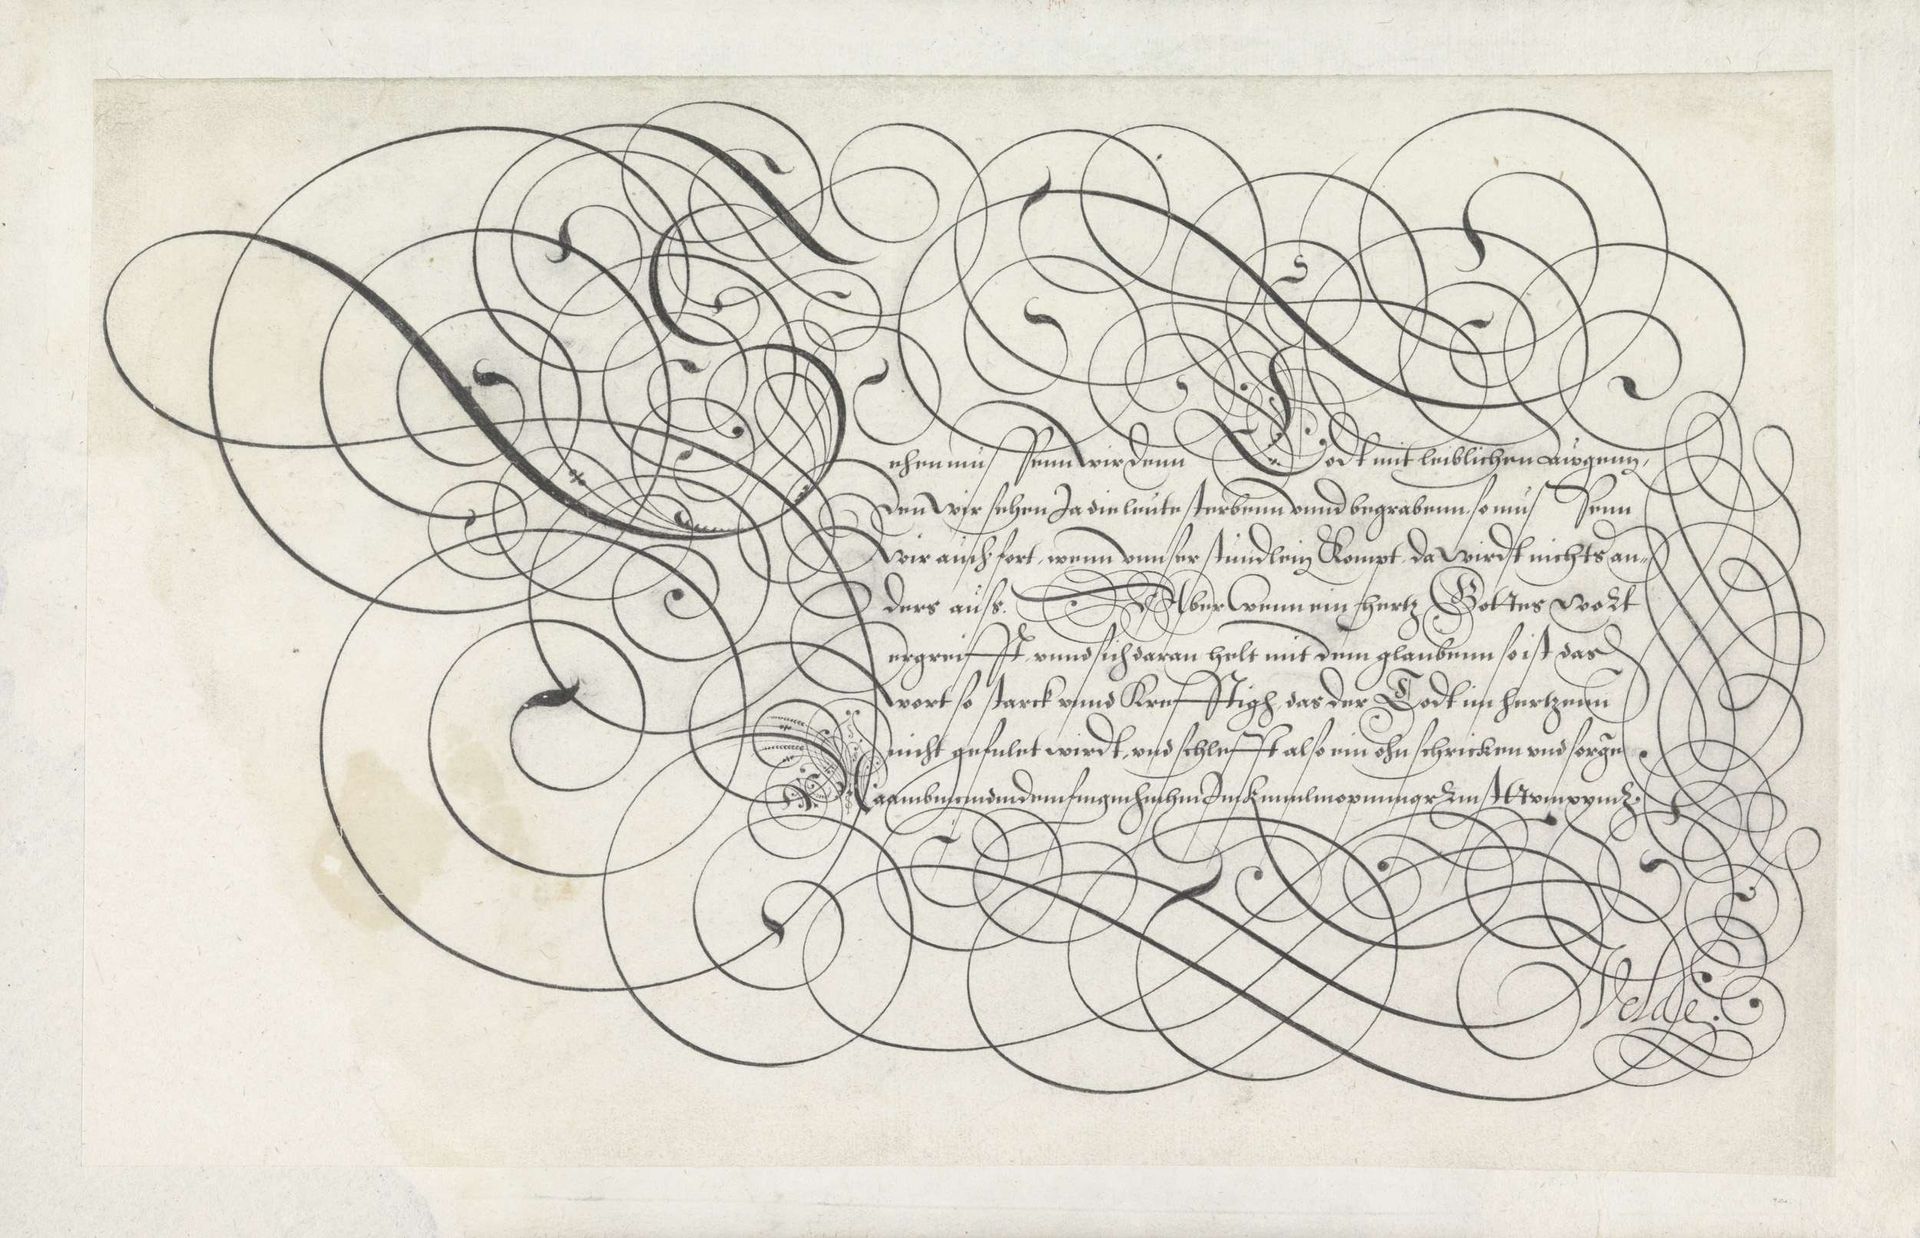 Sehen müssenn wir denn Todt mit leiblichen aügenn,
den wir sehen Ja die leüte sterbenn vnnd begrabenn, so müssenn
wir aüch fort, wenn vnnser stündlein Kompt, da wirdt nichts an=
ders aüss. Aber wenn ein hertz Gottes wort
ergreifft, vnnd sich daran helt mit dem glaubenn so ist das
wort so starck vnnd Krefftigh, das der Todt im hertzenn
nicht gefulet wirdt, vnd schlefft also ein ohn schricken vnd sorge
Velde.